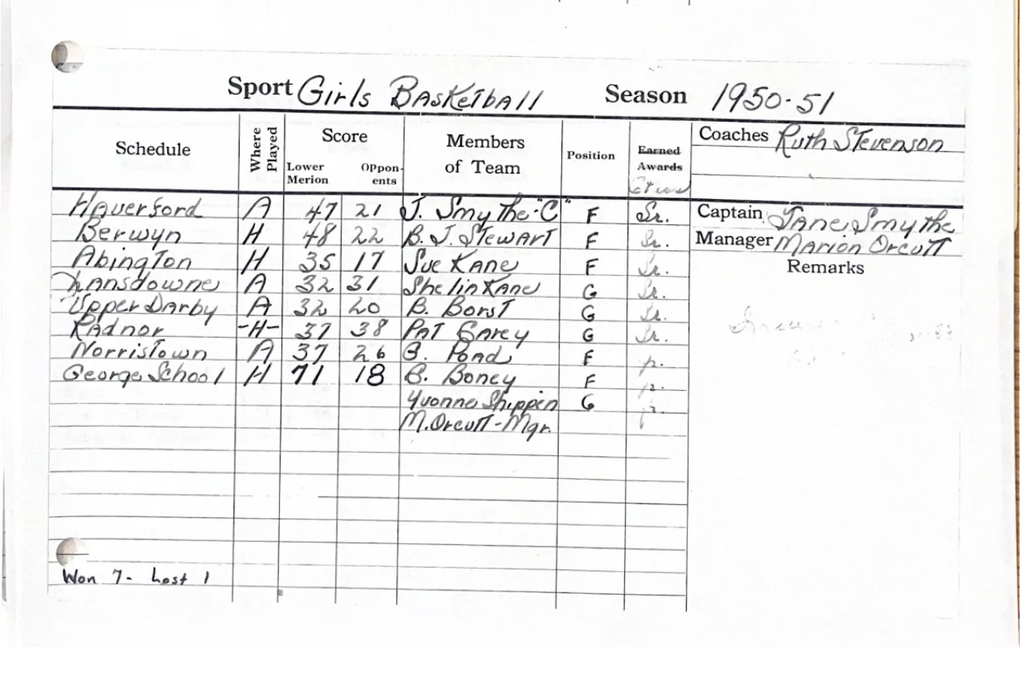 Sport Girls Basketball Season 1950-51
Schedule Where Played Score Lower Merion Opponents Members of Team Position Earned Awards Coaches Ruth Stevenson
Haverford A 47 21 J. Smythe "C" F Sr. Captain Jane Smythe
Berwyn H 48 22 B. J. Stewart F Sr. Manager Marion Orcutt
Abington H 35 17 Sue Kane F Sr. Remarks
Lansdowne A 32 31 Shelin Kane G Sr.
Upper Darby A 32 20 B. Borst G Sr.
Radnor -H- 37 38 Pat Garey G Sr.
Norristown A 37 26 B. Pond F
George School H 71 18 B. Boney F
Yvonne Shippen G
M. Orcutt - Mgr.
Won 7 - Lost 1